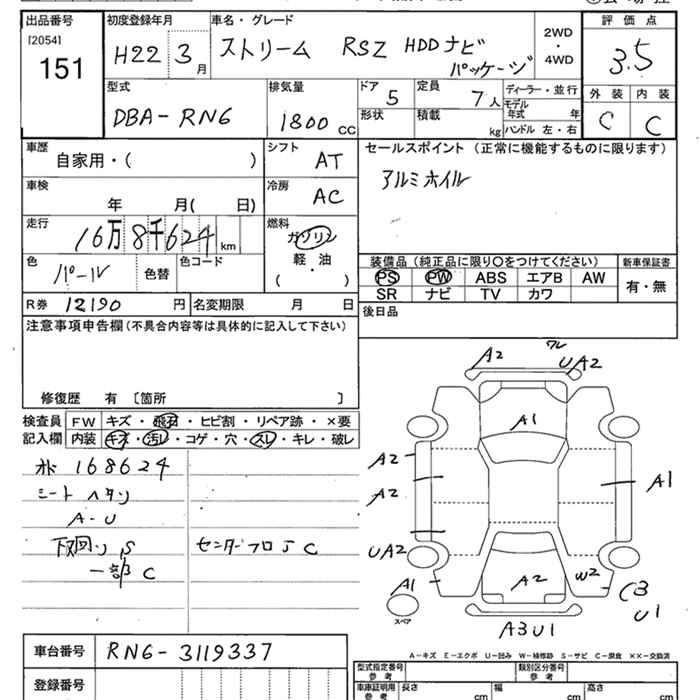 出品番号 初度登録年月 車名・グレード 2WD・4WD 評価点
[2054] 151 H22 3月 ストリーム RSZ HDDナビパッケージ 3.5
型式 排気量 ドア 5 定員 7人 ディーラー・並行 外装 内装
DBA-RN6 1800cc 形状 積載 kg モデル年式 年 C C
ハンドル 左・右
車歴 自家用・( ) シフト AT セールスポイント (正常に機能するものに限ります)
車検 年 月( 日) 冷房 AC アルミホイル
走行 16万8千624km 燃料 ガソリン 軽・油 ( )
色 パール 色替 色コード 装備品(純正品に限り○をつけてください) 新車保証書
PS PW ABS エアB AW 有・無
SR ナビ TV カワ
R券 12190円 名変期限 月 日 後日品
注意事項申告欄(不具合内容等は具体的に記入して下さい)
修復歴 有 〔箇所 〕
検査員 FW キズ・飛石・ヒビ割・リペア跡・×要
記入欄 内装 キズ・汚レ・コゲ・穴・スレ・キレ・破レ
168624
シート ヘタリ
A-U
下回り S センターフロア C
一部 C
A2 ワレ UA2
A1
A2
A2 A1
UA2
A1 A2 W2 C3 U1
スペア
A3U1
A-キズ E-エクボ U-凹み W-補修跡 S-サビ C-腐食 ××-交換済
車台番号 RN6-3119337
型式指定番号 参考 類別区分番号 参考
登録番号 車庫証明用 参考 長さ cm 幅 cm 高さ cm